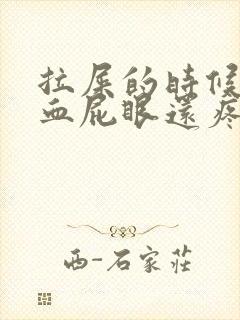 拉屎的時候
血屁眼還疼
西-石家莊